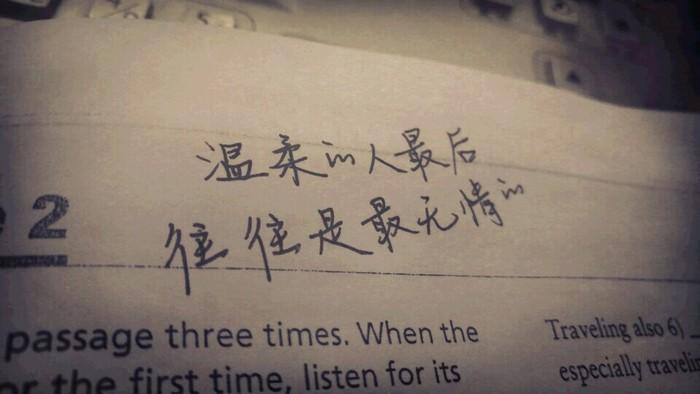 温柔的人最后
往往是最无情的
2
passage three times. When the
or the first time, listen for its
Traveling also 6)
especially